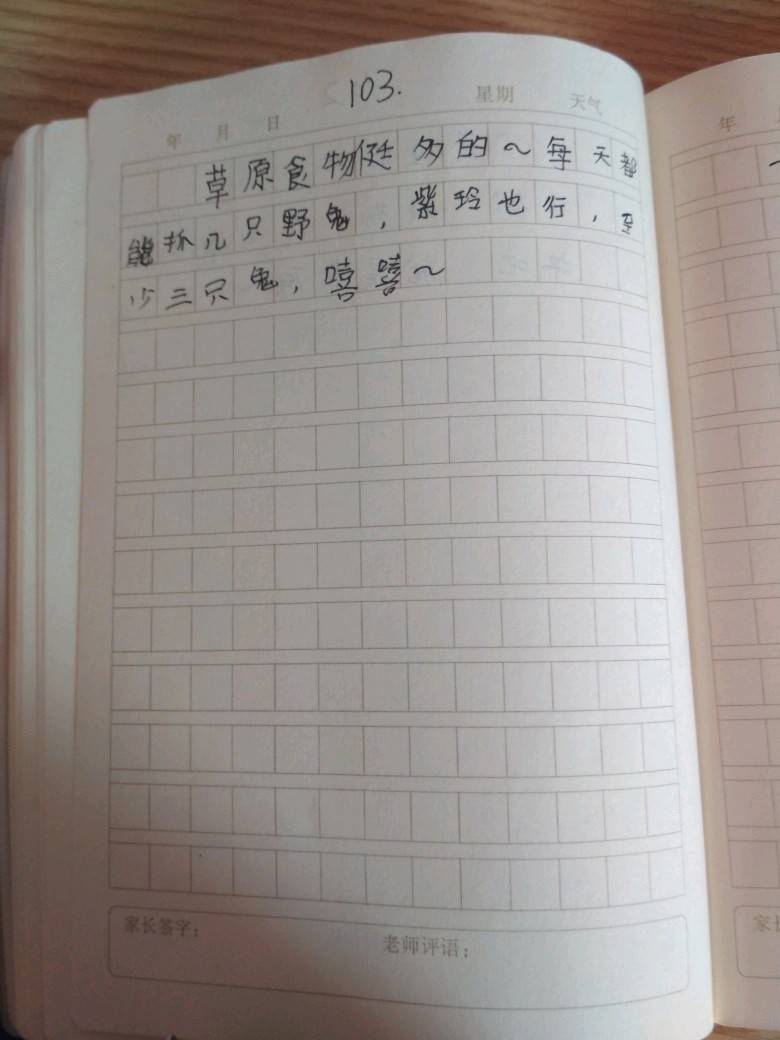 103.
年 月 日 星期 天气
草原食物挺多的~每天都
能抓几只野兔，紫玲也行，至
少三只兔，嘻嘻~
家长签字：
老师评语：
年